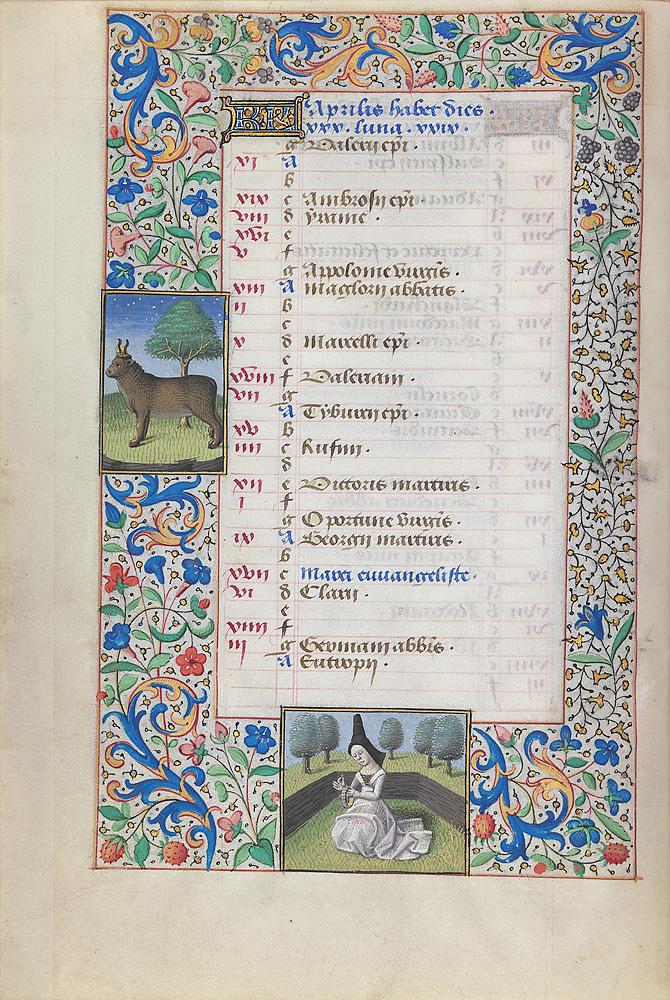 KL Aprilis habet dies
xxx. luna. xxix.
g Valerii epi.
xi A
b
xix c Ambrosii epi.
viii d Yreine.
xvi e
v f
g Appolonie virgis.
xiii A Maglorii abbatis.
ii b
c
x d Marcelli epi.
e
xviii f Valeriani.
vii g
A Tyburcii epi.
xv b
iiii c Rufini.
d
xii e Victoris martiris.
i f
g Oportune virgis.
ix A Georgii martiris.
b
xvii c Marci euuangeliste.
vi d Clarii.
e
xiiii f
iii g Germani abbis.
A Eutropii.